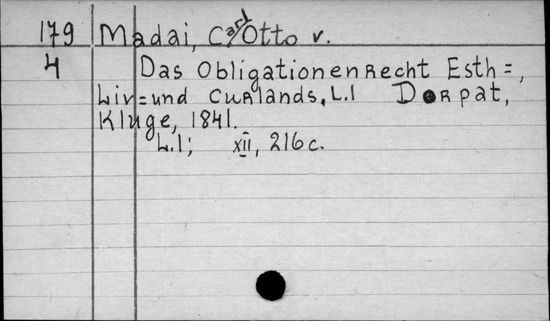 179 Madai, Carl Otto v.
4 Das Obligationenrecht Esth=,
Liv=und Curlands, L.1 Dorpat,
Kluge, 1841.
L.1; XII, 216 c.